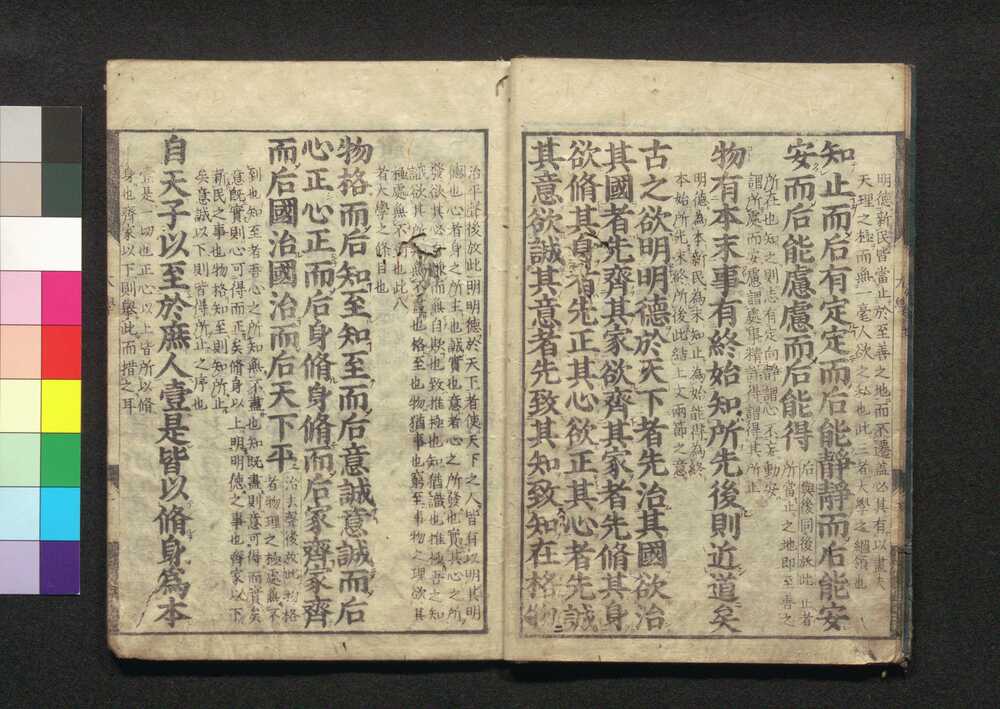 明德新民皆當止於至善之地而不遷蓋必其有以盡夫
天理之極而無一毫人欲之私也此三者大學之綱領也
知止而后有定定而后能靜靜而后能安
安而后能慮慮而后能得
后與後同後放此 止者
所當止之地即至善之
所在也知之則志有定向靜謂心不妄動安
謂所處而安慮謂處事精詳得謂得其所止
物有本末事有終始知所先後則近道矣
明德為本新民為末知止為始能得為終
本始所先末終所後此結上文兩節之意
古之欲明明德於天下者先治其國欲治
其國者先齊其家欲齊其家者先脩其身
欲脩其身者先正其心欲正其心者先誠
其意欲誠其意者先致其知致知在格物
治平聲後放此明明德於天下者使天下之人皆有以明其明
德也心者身之所主也誠實也意者心之所發也實其心之所
發欲其必自慊而無自欺也致推極也知猶識也推極吾之知
識欲其所知無不盡也格至也物猶事也窮至事物之理欲其
極處無不到也此八
者大學之條目也
物格而后知至知至而后意誠意誠而后
心正心正而后身脩身脩而后家齊家齊
而后國治國治而后天下平
治去聲後放此物格
者物理之極處無不
到也知至者吾心之所知無不盡也知既盡則意可得而實矣
意既實則心可得而正矣脩身以上明明德之事也齊家以下
新民之事也物格知至則知所止
矣意誠以下則皆得所止之序也
自天子以至於庶人壹是皆以脩身為本
壹是一切也正心以上皆所以脩
身也齊家以下則舉此而措之耳